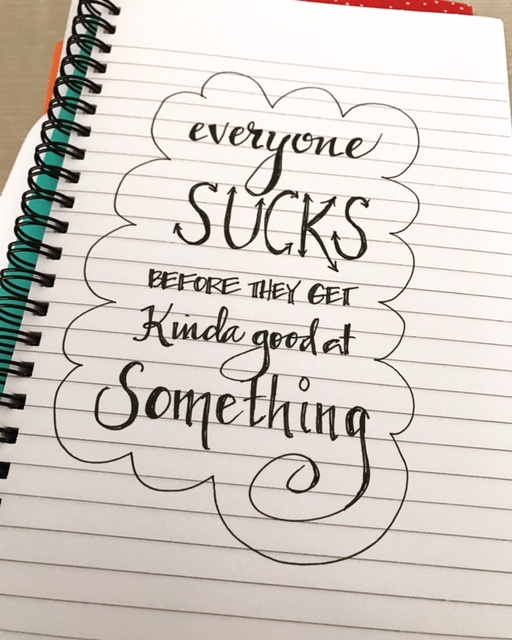 everyone
SUCKS
BEFORE THEY GET
Kinda good at
Something